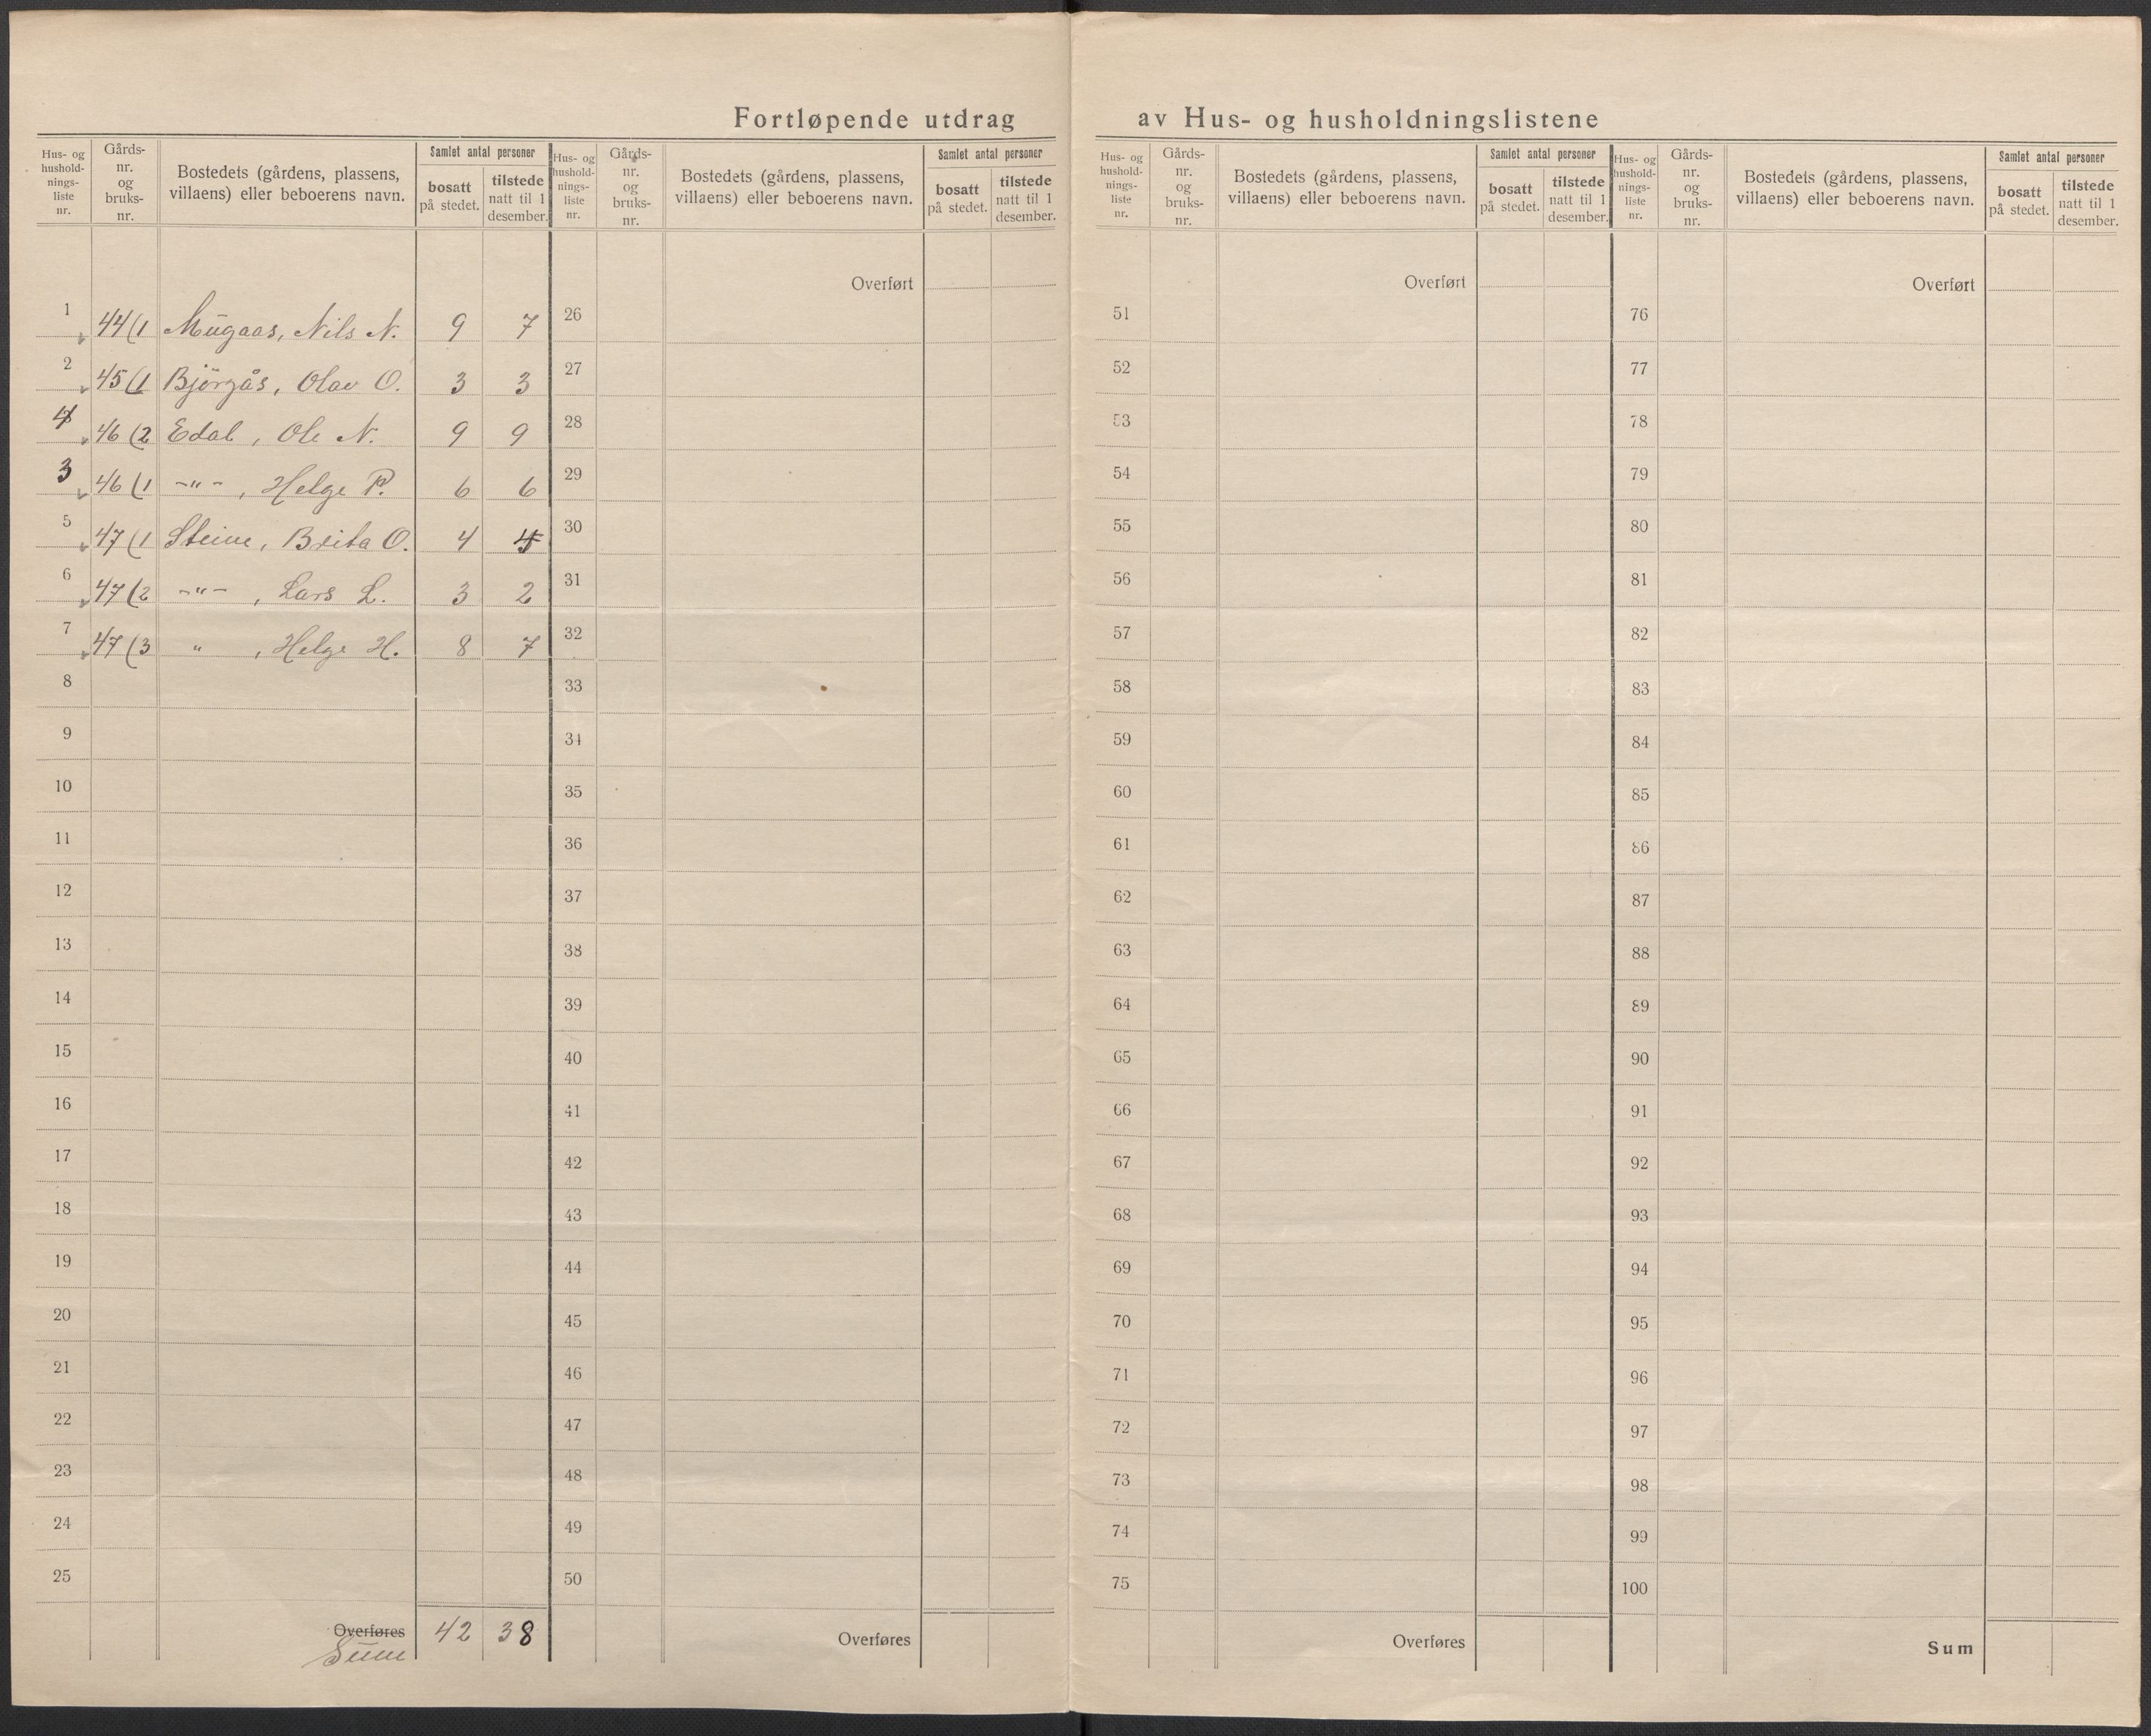 Fortløpende utdrag av Hus- og husholdningslistene
Hus- og hushold-nings-liste nr. | Gårds-nr. og bruks-nr. | Bostedets (gårdens, plassens, villaens) eller beboerens navn. | Samlet antal personer | bosatt på stedet. | tilstede natt til 1 desember.
1 44(1 Mūgaas, Nils N. 9 7
2 45(1 Björgås, Olav O. 3 3
4 46(2 Edal, Ole N. 9 9
3 46(1 -"-, Helge P. 6 6
5 47(1 Steine, Brita O. 4 4
6 47(2 -"-, Lars L. 3 2
7 47(3 ", Helge H. 8 7
8
9
10
11
12
13
14
15
16
17
18
19
20
21
22
23
24
25
Overføres 42 38
Sūm
Hus- og hushold-nings-liste nr. | Gårds-nr. og bruks-nr. | Bostedets (gårdens, plassens, villaens) eller beboerens navn. | Samlet antal personer | bosatt på stedet. | tilstede natt til 1 desember.
Overført
26
27
28
29
30
31
32
33
34
35
36
37
38
39
40
41
42
43
44
45
46
47
48
49
50
Overføres
Hus- og hushold-nings-liste nr. | Gårds-nr. og bruks-nr. | Bostedets (gårdens, plassens, villaens) eller beboerens navn. | Samlet antal personer | bosatt på stedet. | tilstede natt til 1 desember.
Overført
51
52
53
54
55
56
57
58
59
60
61
62
63
64
65
66
67
68
69
70
71
72
73
74
75
Overføres
Hus- og hushold-nings-liste nr. | Gårds-nr. og bruks-nr. | Bostedets (gårdens, plassens, villaens) eller beboerens navn. | Samlet antal personer | bosatt på stedet. | tilstede natt til 1 desember.
Overført
76
77
78
79
80
81
82
83
84
85
86
87
88
89
90
91
92
93
94
95
96
97
98
99
100
Sum